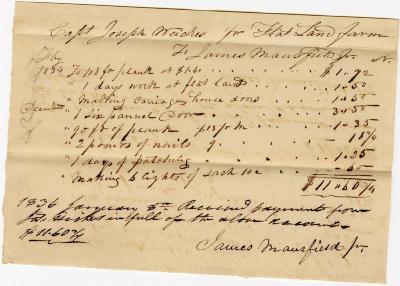 Capt Joseph Weickes for Flat Land farm
To James Mansfield Jr. Dr.
1834 To ft plank at $1.60 $1.92
" 1 days work at flat land 1.50
" Making Carriage house doors 1.50
" 1 six pannel Door 3.50
" 90 ft of plank pr M 1.35
" 2 pounds of nails 9 18¾
" 1 day of patching 1.25
" Making 6 lights of sash 10c 60
$11.60¾
1836 January Received payment from
Jos. in full of the above account
$11.60¾
James Mansfield Jr.